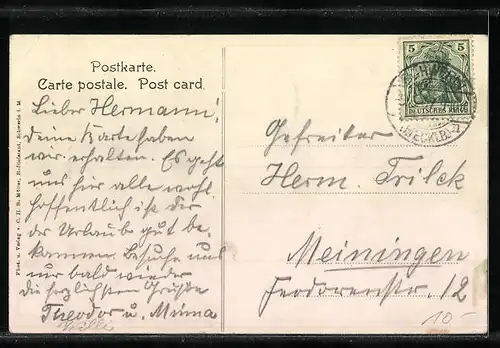 Postkarte.
Carte postale. Post card.
Lieber Hermann!
deine Karte haben
wir erhalten. Es geht
uns hier alle wohl
hoffentlich ist dir
der Urlaub gut be-
kommen Besuche uns
nur bald wieder
die herzlichsten Grüße
Theodor u. Minna
Willi
Phot. u. Verlag v. C. H. B. Müller, Hofbuchbinder, Schwerin i. M.
5 5
DEUTSCHES REICH
SCHWERIN
(MECKLB.)
Gefreiter
Herm. Trilck
Meiningen
Feodorenstr. 12
10-